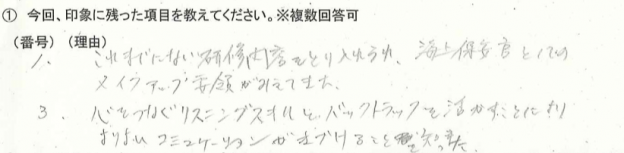 ① 今回、印象に残った項目を教えてください。※複数回答可
(番号) (理由)
1. これまでにない研修内容をとり入れられ、海上保安官としての
メイクアップ要領が
3. 心をつなぐリスニングスキルと、バックトラックを活かすことにより
よりよいコミュニケーションが きづけることを知った。